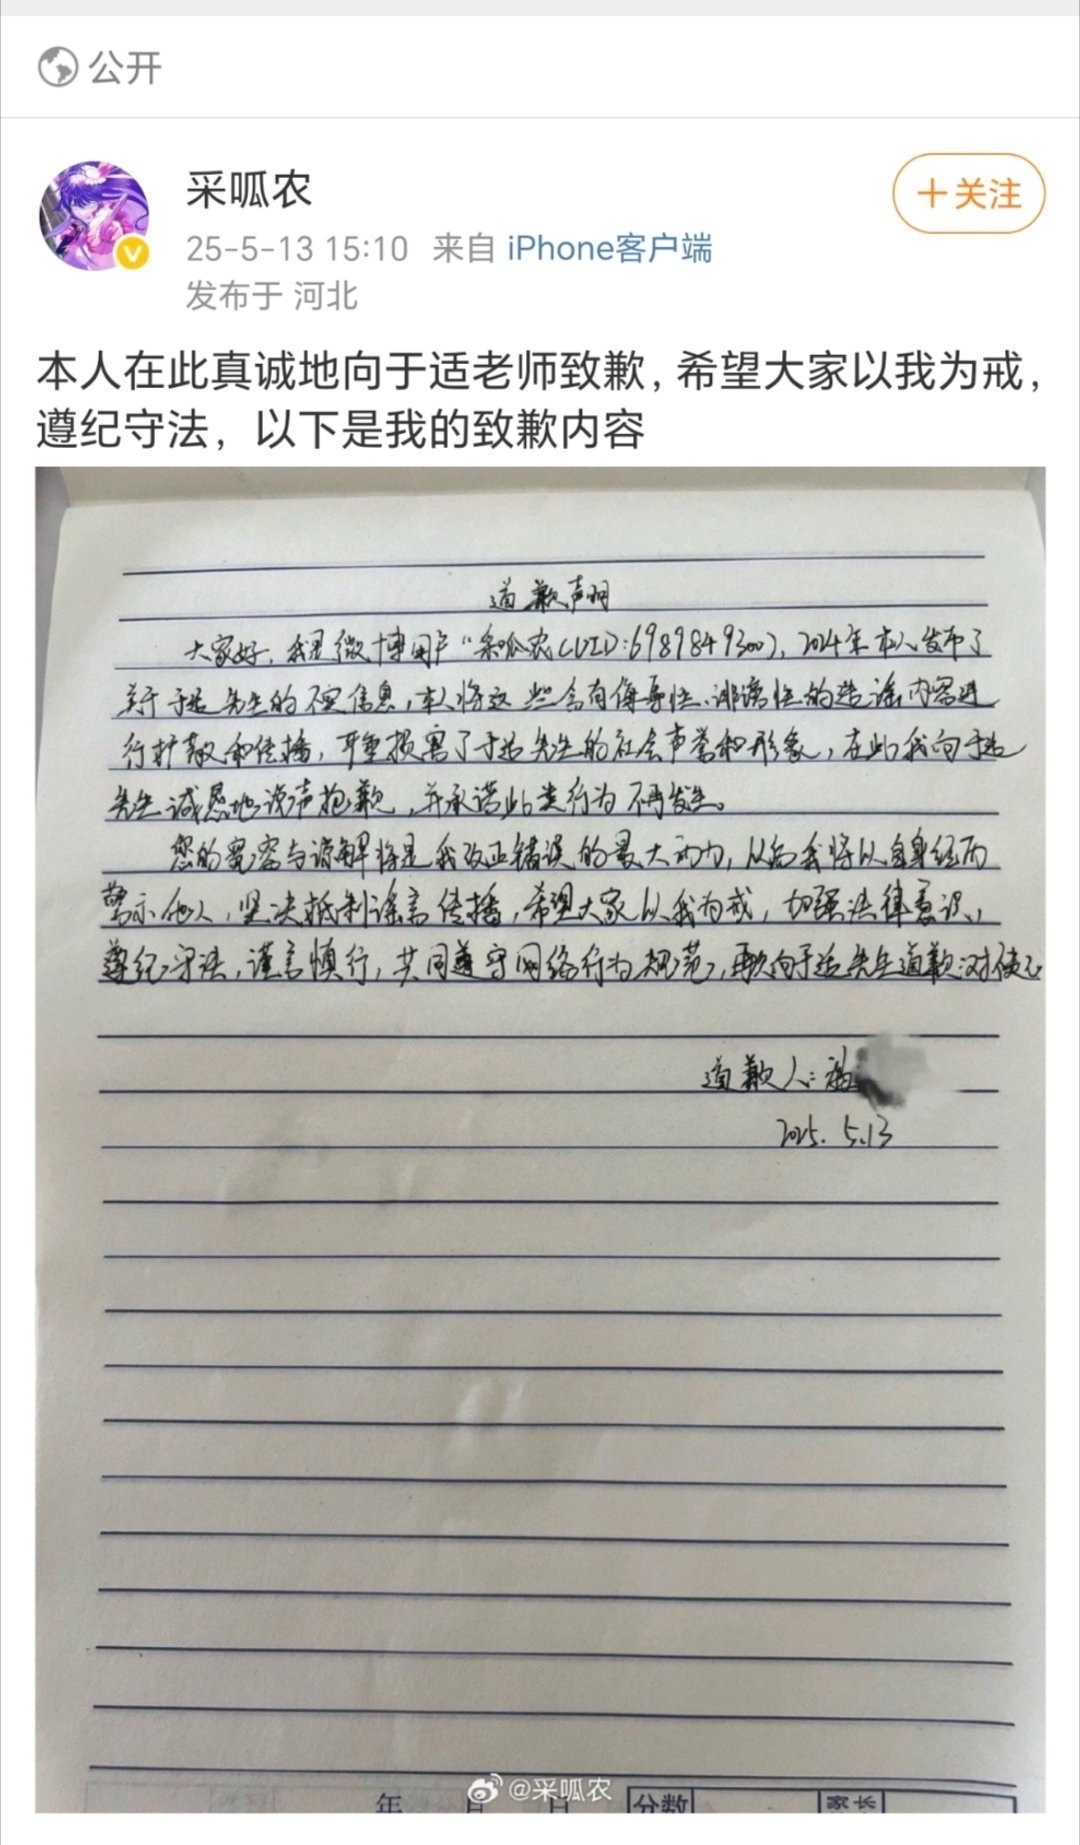 公开
采呱农
+关注
25-5-13 15:10 来自 iPhone客户端
发布于 河北
本人在此真诚地向于适老师致歉，希望大家以我为戒，
遵纪守法，以下是我的致歉内容
道歉声明
大家好，我是微博用户“采呱农(UID:6989849300)，2024年本人发布了
关于于适先生的不实信息，本人将这些含有侮辱性、诽谤性的造谣内容进
行扩散和传播，严重损害了于适先生的社会声誉和形象，在此我向于适
先生诚恳地说声抱歉，并承诺此类行为不再发生。
您的宽容与谅解将是我改正错误的最大动力，以后我将以自身经历
警示他人，坚决抵制谣言传播，希望大家以我为戒，加强法律意识，
遵纪守法，谨言慎行，共同遵守网络行为规范，再次向于适先生道歉对不起
道歉人：
2025.5.13
@采呱农
年 月 日 分数 家长